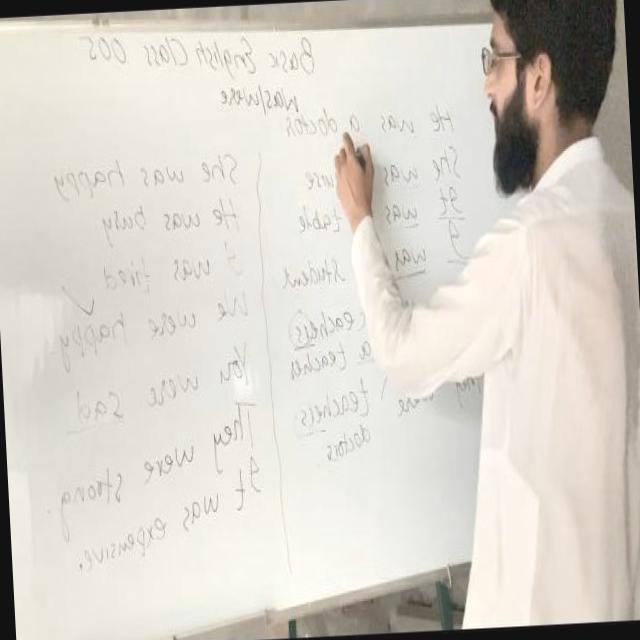 Base English Class 005
was/were
He was a doctor
She was
It was table
I was student
teachers
a teacher
teachers
doctors
She was happy
He was busy
I was tired
We were happy.
You were sad
They were strong.
It was expensive.